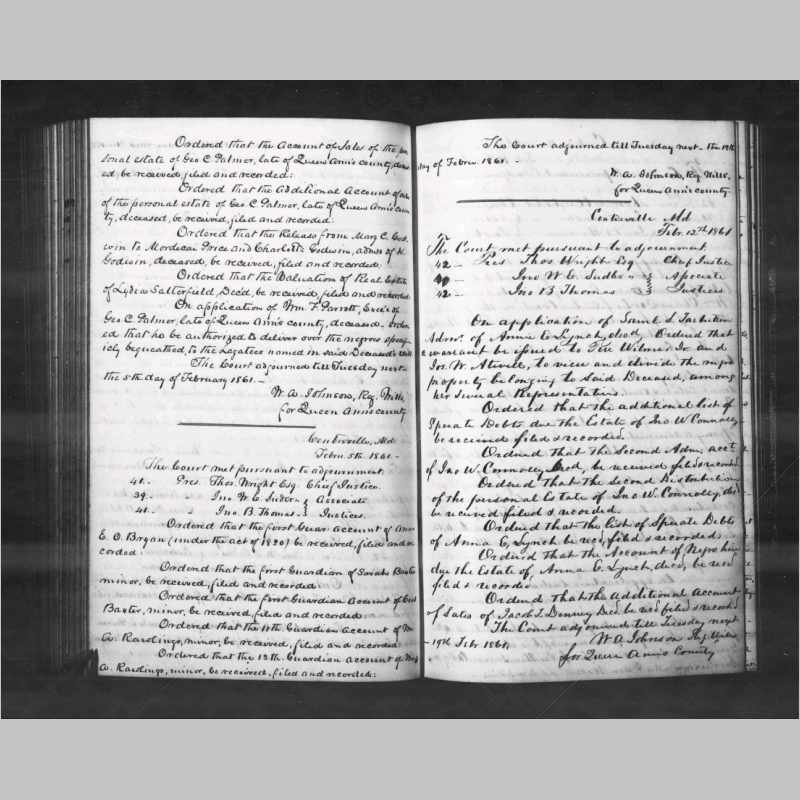 Ordered that the Account of Sales of the per
sonal estate of Geo C Palmer, late of Queen Ann's county, deceas
ed, be received, filed and recorded:
Ordered that the Additional Account of sales
of the personal estate of Geo. C Palmer, late of Queen Ann's coun
ty, deceased, be received, filed and recorded:
Ordered that the Release from Mary C. God
win to Mordecai Price and Charlotte Godwin, admrs of
Godwin, deceased, be received, filed and recorded
Ordered that the Valuation of Real Estate
of Lydia Satterfield, Dec'd, be received, filed and recorded
On application of Wm. F. Parrott, Exec'r of
Geo C Palmer, late of Queen Ann's county, deceased. Order
ed that he be authorized to deliver over the negroes specif
icly bequeathed, to the Legatees named in said Deceased's will
The Court adjourned till Tuesday next
the 5th day of February 1861. –
W. A. Johnson, Reg. Wills
for Queen Ann's county
Centreville, Md
Febru. 5th 1861 –
The Court met pursuant to adjournment
41. Pres. Thos. Wright Esq. Chief Justice.
39. " Jno W. C. Sudler } Associate
41. – " Jno B. Thomas – } Justices.
Ordered that the first Guar. Account of Ann
E. O. Bryan (under the act of 1820) be received, filed and re
corded:
Ordered that the first Guardian of Sarah Baxter
minor, be received, filed and recorded
Ordered that the first Guardian Account of
Baxter, minor, be received, filed and recorded
Ordered that the 11th Guardian Account of Wm
W. Rawlings, minor, be received, filed and recorded:
Ordered that the 12th Guardian account of Wm
W. Rawlings, minor, be received, filed and recorded:
The Court adjourned till Tuesday next – the 12th
day of Febru. 1861. –
W. A. Johnson, Reg. Wills.
for Queen Ann's county
Centreville Md
Feb. 12th 1861
The Court met pursuant to adjournment
42 – Pres Thos Wright Esq Chief Justice
40 – Jno W. C. Sudler } Associate
42 – Jno B. Thomas } Justices
On application of Saml L
Admr. of Anna C Lynch, decd, Ordered that
warrant be issued to Wilmer Jr. and
Jas. W. to view and divide the negro
property belonging to said Deceased, among
her several Representatives.
Ordered that the additional list of
Sperate Debts due the Estate of Jno W Connolly
be received filed & recorded.
Ordered that the Second Adm. acct.
of Jno W. Connolly, Decd, be received filed & recorded
Ordered that the Second Distribution
of the personal Estate of Jno W. Connolly, dec
be received filed & recorded.
Ordered that the list of Sperate Debts
of Anna C. Lynch be rec, filed & recorded
Ordered that the Account of Negro hire
due the Estate of Anna C. Lynch, decd, be rec
filed & recorded
Ordered that the Additional Account
of Sales of Jacob L Denney Decd be rec filed & recorded
The Court adjourned till Tuesday next
– 19th Feb. 1861,
W A Johnson Reg Wills
for Queen Ann's County